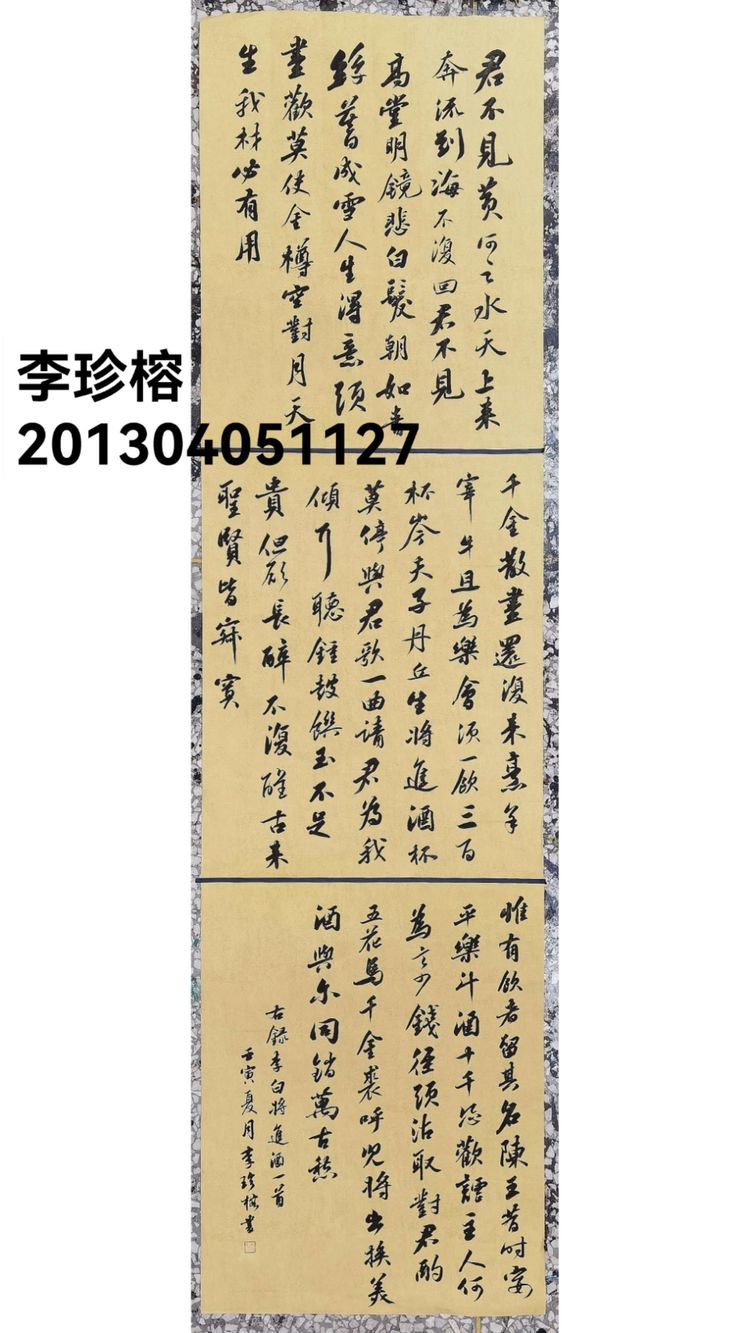 君不見黃河之水天上来
奔流到海不復回君不見
高堂明鏡悲白髮朝如青
絲暮成雪人生得意須
盡歡莫使金樽空對月天
生我材必有用
李珍榕
201304051127
千金散盡還復来烹羊
宰牛且為樂會須一飲三百
杯岑夫子丹丘生將進酒杯
莫停與君歌一曲請君為我
傾耳聽鍾鼓饌玉不足
貴但願長醉不復醒古来
聖賢皆寂寞
惟有飲者留其名陳王昔时宴
平樂斗酒十千恣歡謔主人何
為言少錢徑須沽取對君酌
五花馬千金裘呼兒將出換美
酒與尔同銷萬古愁
右録李白將進酒一首
壬寅夏月李珍榕書